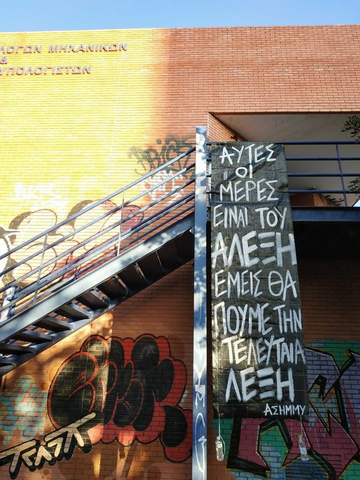 ΛΟΓΩΝ ΜΗΧΑΝΙΚΩΝ
&
ΥΠΟΛΟΓΙΣΤΩΝ
ΑΥΤΕΣ
ΟΙ
ΜΕΡΕΣ
ΕΙΝΑΙ ΤΟΥ
ΑΛΕΞΗ
ΕΜΕΙΣ ΘΑ
ΠΟΥΜΕ ΤΗΝ
ΤΕΛΕΥΤΑΙΑ
ΛΕΞΗ
ΑΣΗΜΜΥ